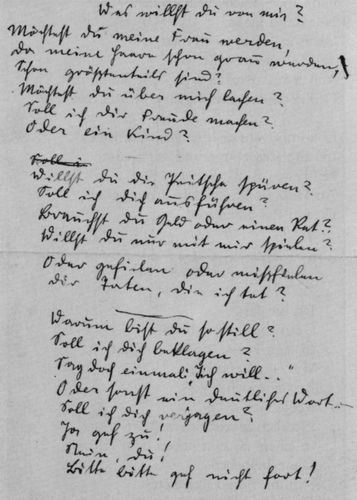 Was willst du von mir?
Möchtest du meine Frau werden,
da meine Haare schon grau werden,
Schon größtenteils sind?
Möchtest du über mich lachen?
Soll ich dir Freude machen?
Oder ein Kind?
Soll i
Willst du die Peitsche spüren?
Soll ich dich ausführen?
Brauchst du Geld oder einen Rat?
Willst du nur mit mir spielen?
Oder gefielen oder missfielen
dir Taten, die ich tat?
Warum bist du so still?
Soll ich dich beklagen?
Sag doch einmal: „Ich will..."
Oder sonst ein deutliches Wort..
Soll ich dich verjagen?
Ja geh zu!
Nein, du!
Bitte bitte geh nicht fort!